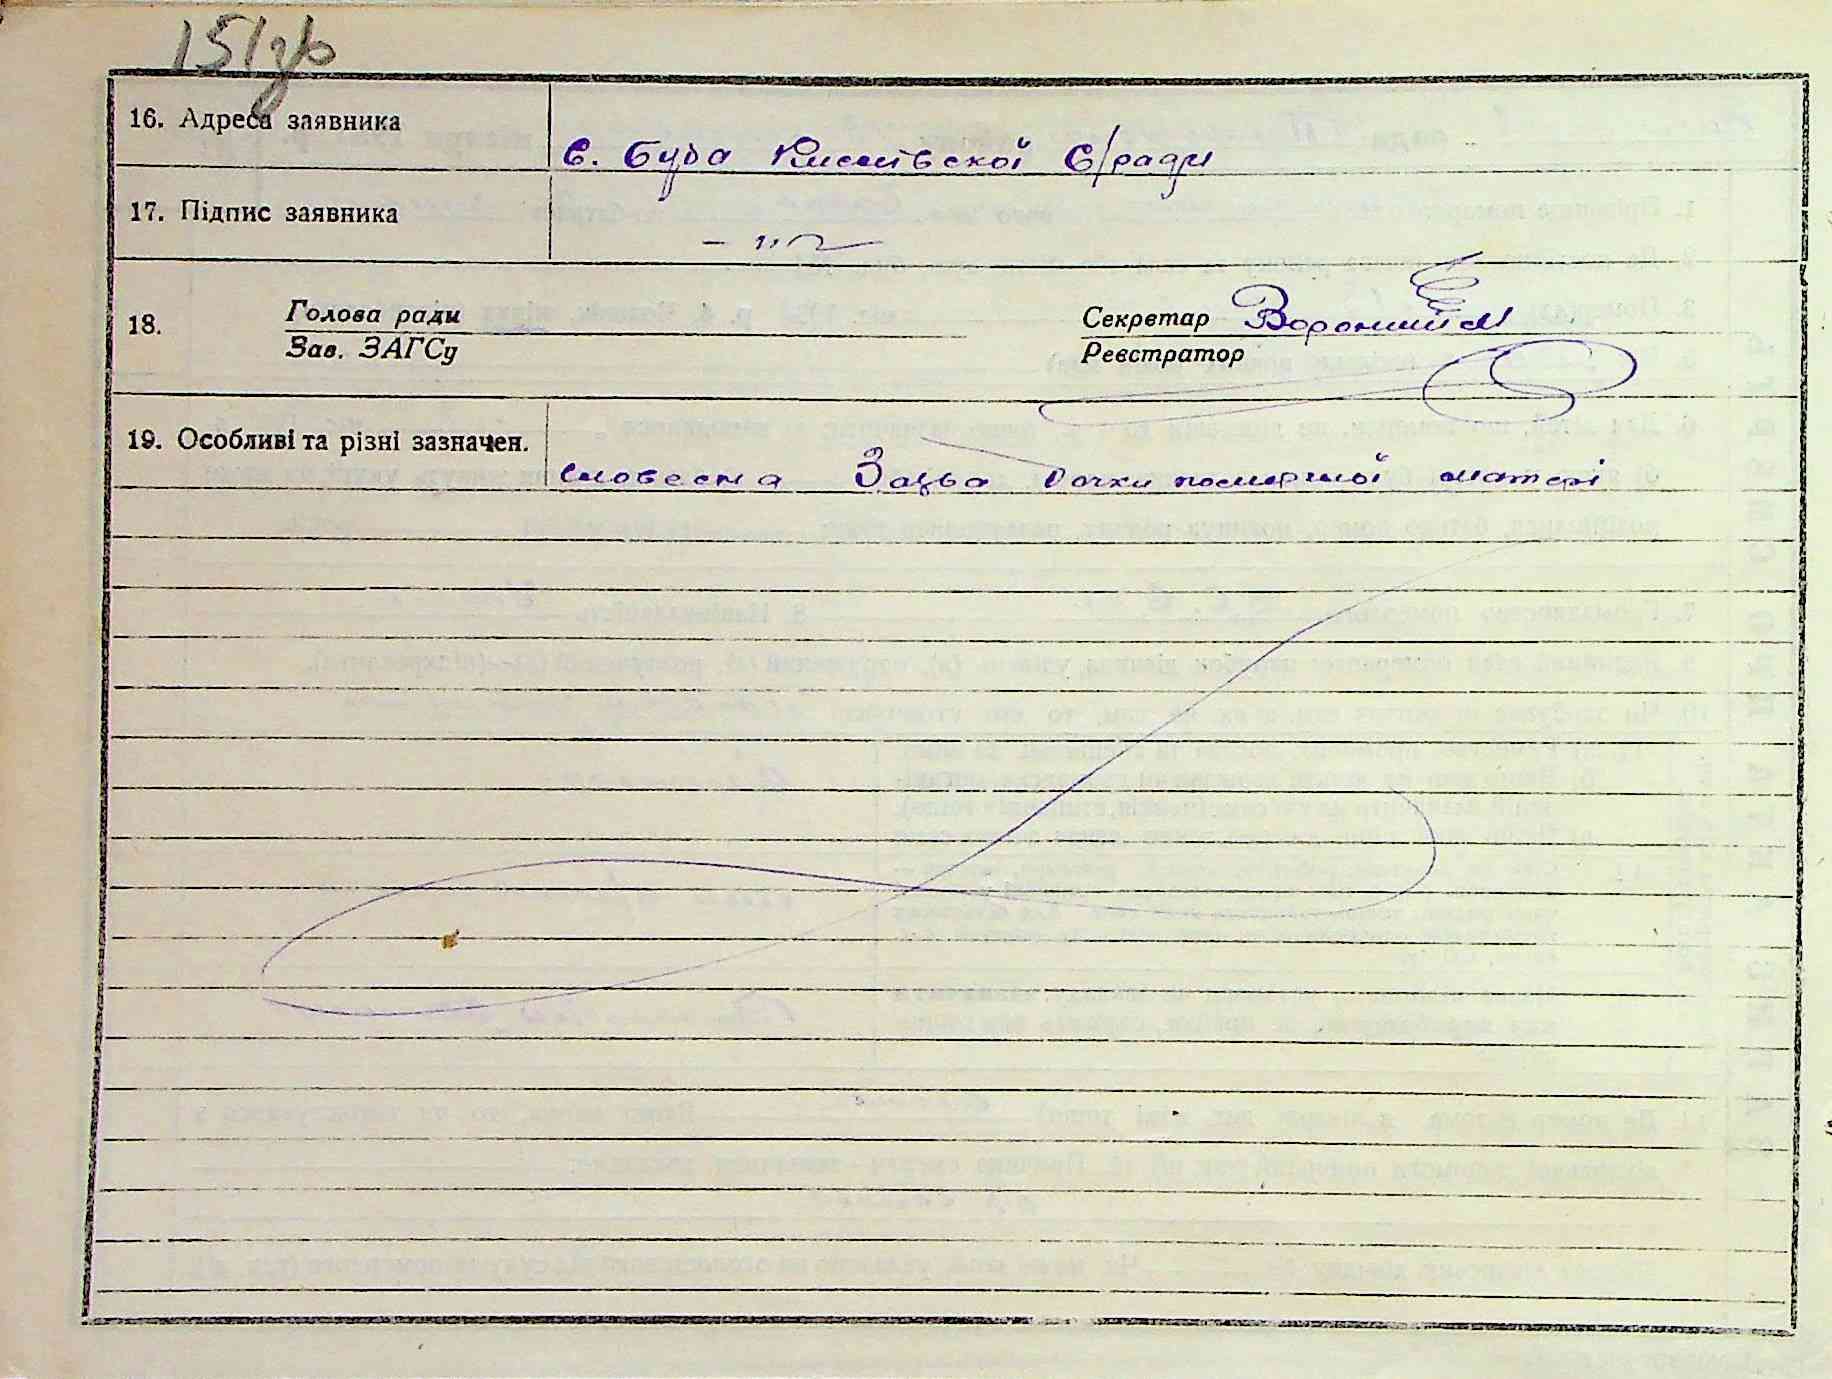 151зв
16. Адреса заявника
с. Буда С/ради
17. Підпис заявника
18.
Голова ради
Секретар
Зав. ЗАГСу
Реєстратор
19. Особливі та різні зазначен.
словесна Заява дочки помершої матері